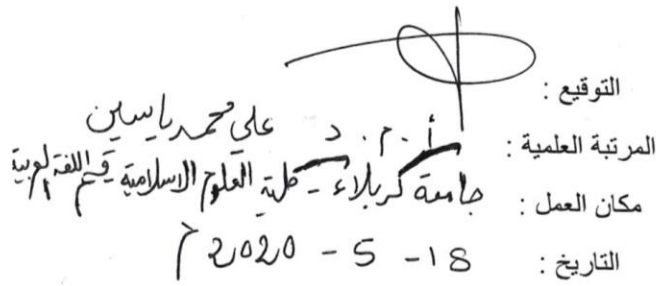 التوقيع :
المرتبة العلمية : أ.م.د علي محمد ياسين
مكان العمل : جامعة كربلاء - كلية العلوم الاسلامية قسم اللغة العربية
التاريخ : 18 - 5 - 2020 م